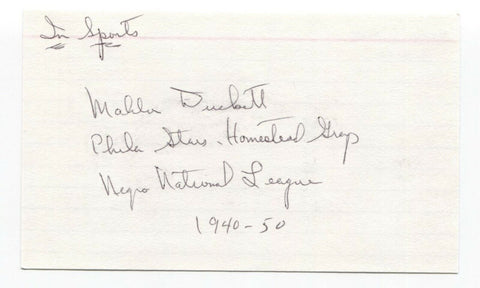 In Sports
Mahlon Duckett
Phila Stars - Homestead Grays
Negro National League
1940-50